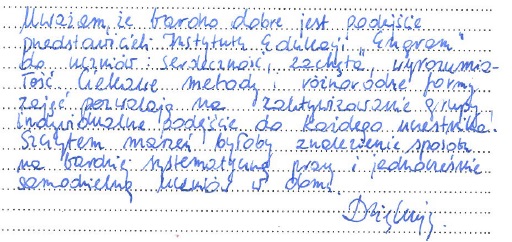 Uważam, że bardzo dobre jest podejście
przedstawicieli Instytutu Edukacji "Engram"
do uczniów: serdeczność, zachęta, wyrozumia-
łość. Ciekawe metody i różnorodne formy
zajęć pozwalają na zaktywizowanie grupy i
indywidualne podejście do każdego uczestnika.
Szczytem marzeń byłoby znalezienie sposobu
na bardziej systematyczną pracę i jednocześnie
samodzielną uczniów w domu.
Dziękuję.